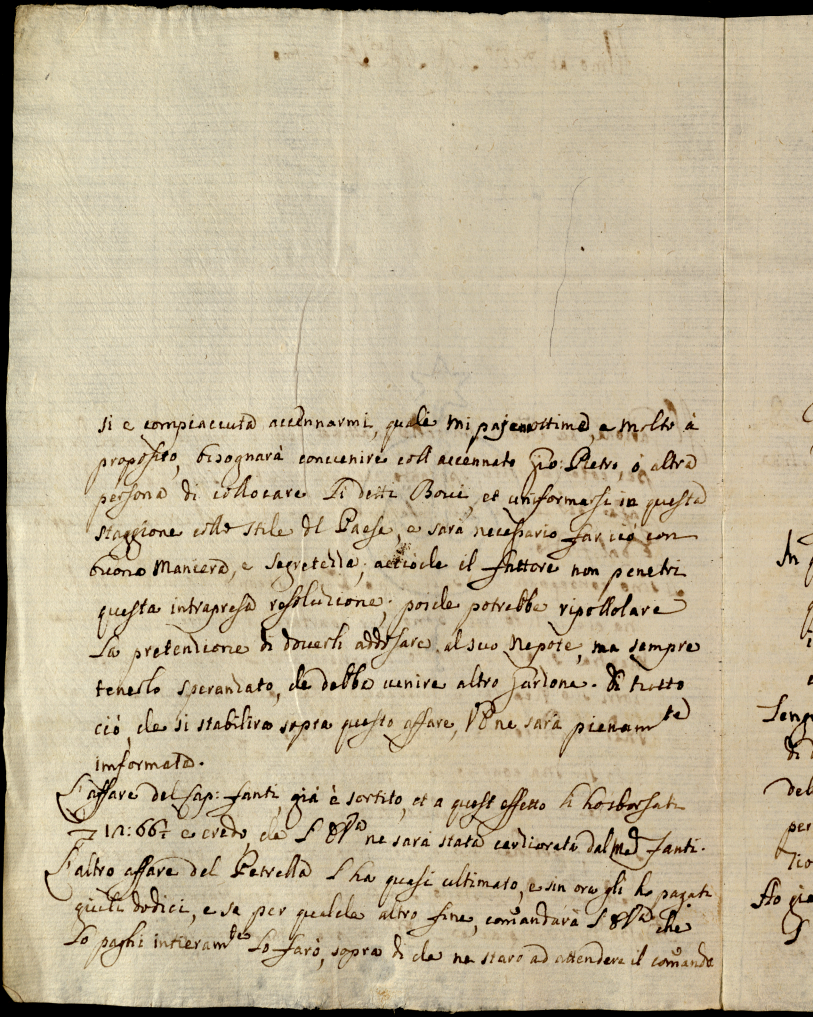 si è compiacciuta accennarmi, quale mi paje ottima, e molto à
proposito, bisognarà convenire coll'accennato Gio: Pietro, ò altra
persona di collocare li detti Bovi, et uniformarsi in questa
staggione collo stile del Paese, e sarà necessario far ciò con
buona maniera, e segretezza, acciocche il fattore non penetri
questa intrapresa resoluzione; poiche potrebbe ripollolare
la pretenzione di doverli addossare al suo nepote, ma sempre
tenerlo speranzato, che debba venire altro Garzone. Di tutto
ciò, che si stabilirà sopra questo affare, VS ne sarà pienam.te
imformata.
L'affare del Cap: Fanti, già è sortito, et a quest'effetto li hò sborsati
12:66 e credo che V.S. Ill.ma ne sarà stata ragguagliata dal med. Fanti.
L'altro affare del Petrella l'ha quasi ultimato, e sin ora gli hò pagati
giuli dodici, e se per qualche altro fine, comandarà V.S. Ill.ma che
lo paghi intieram.te lo farò, sopra di che ne starò ad attendere il comando